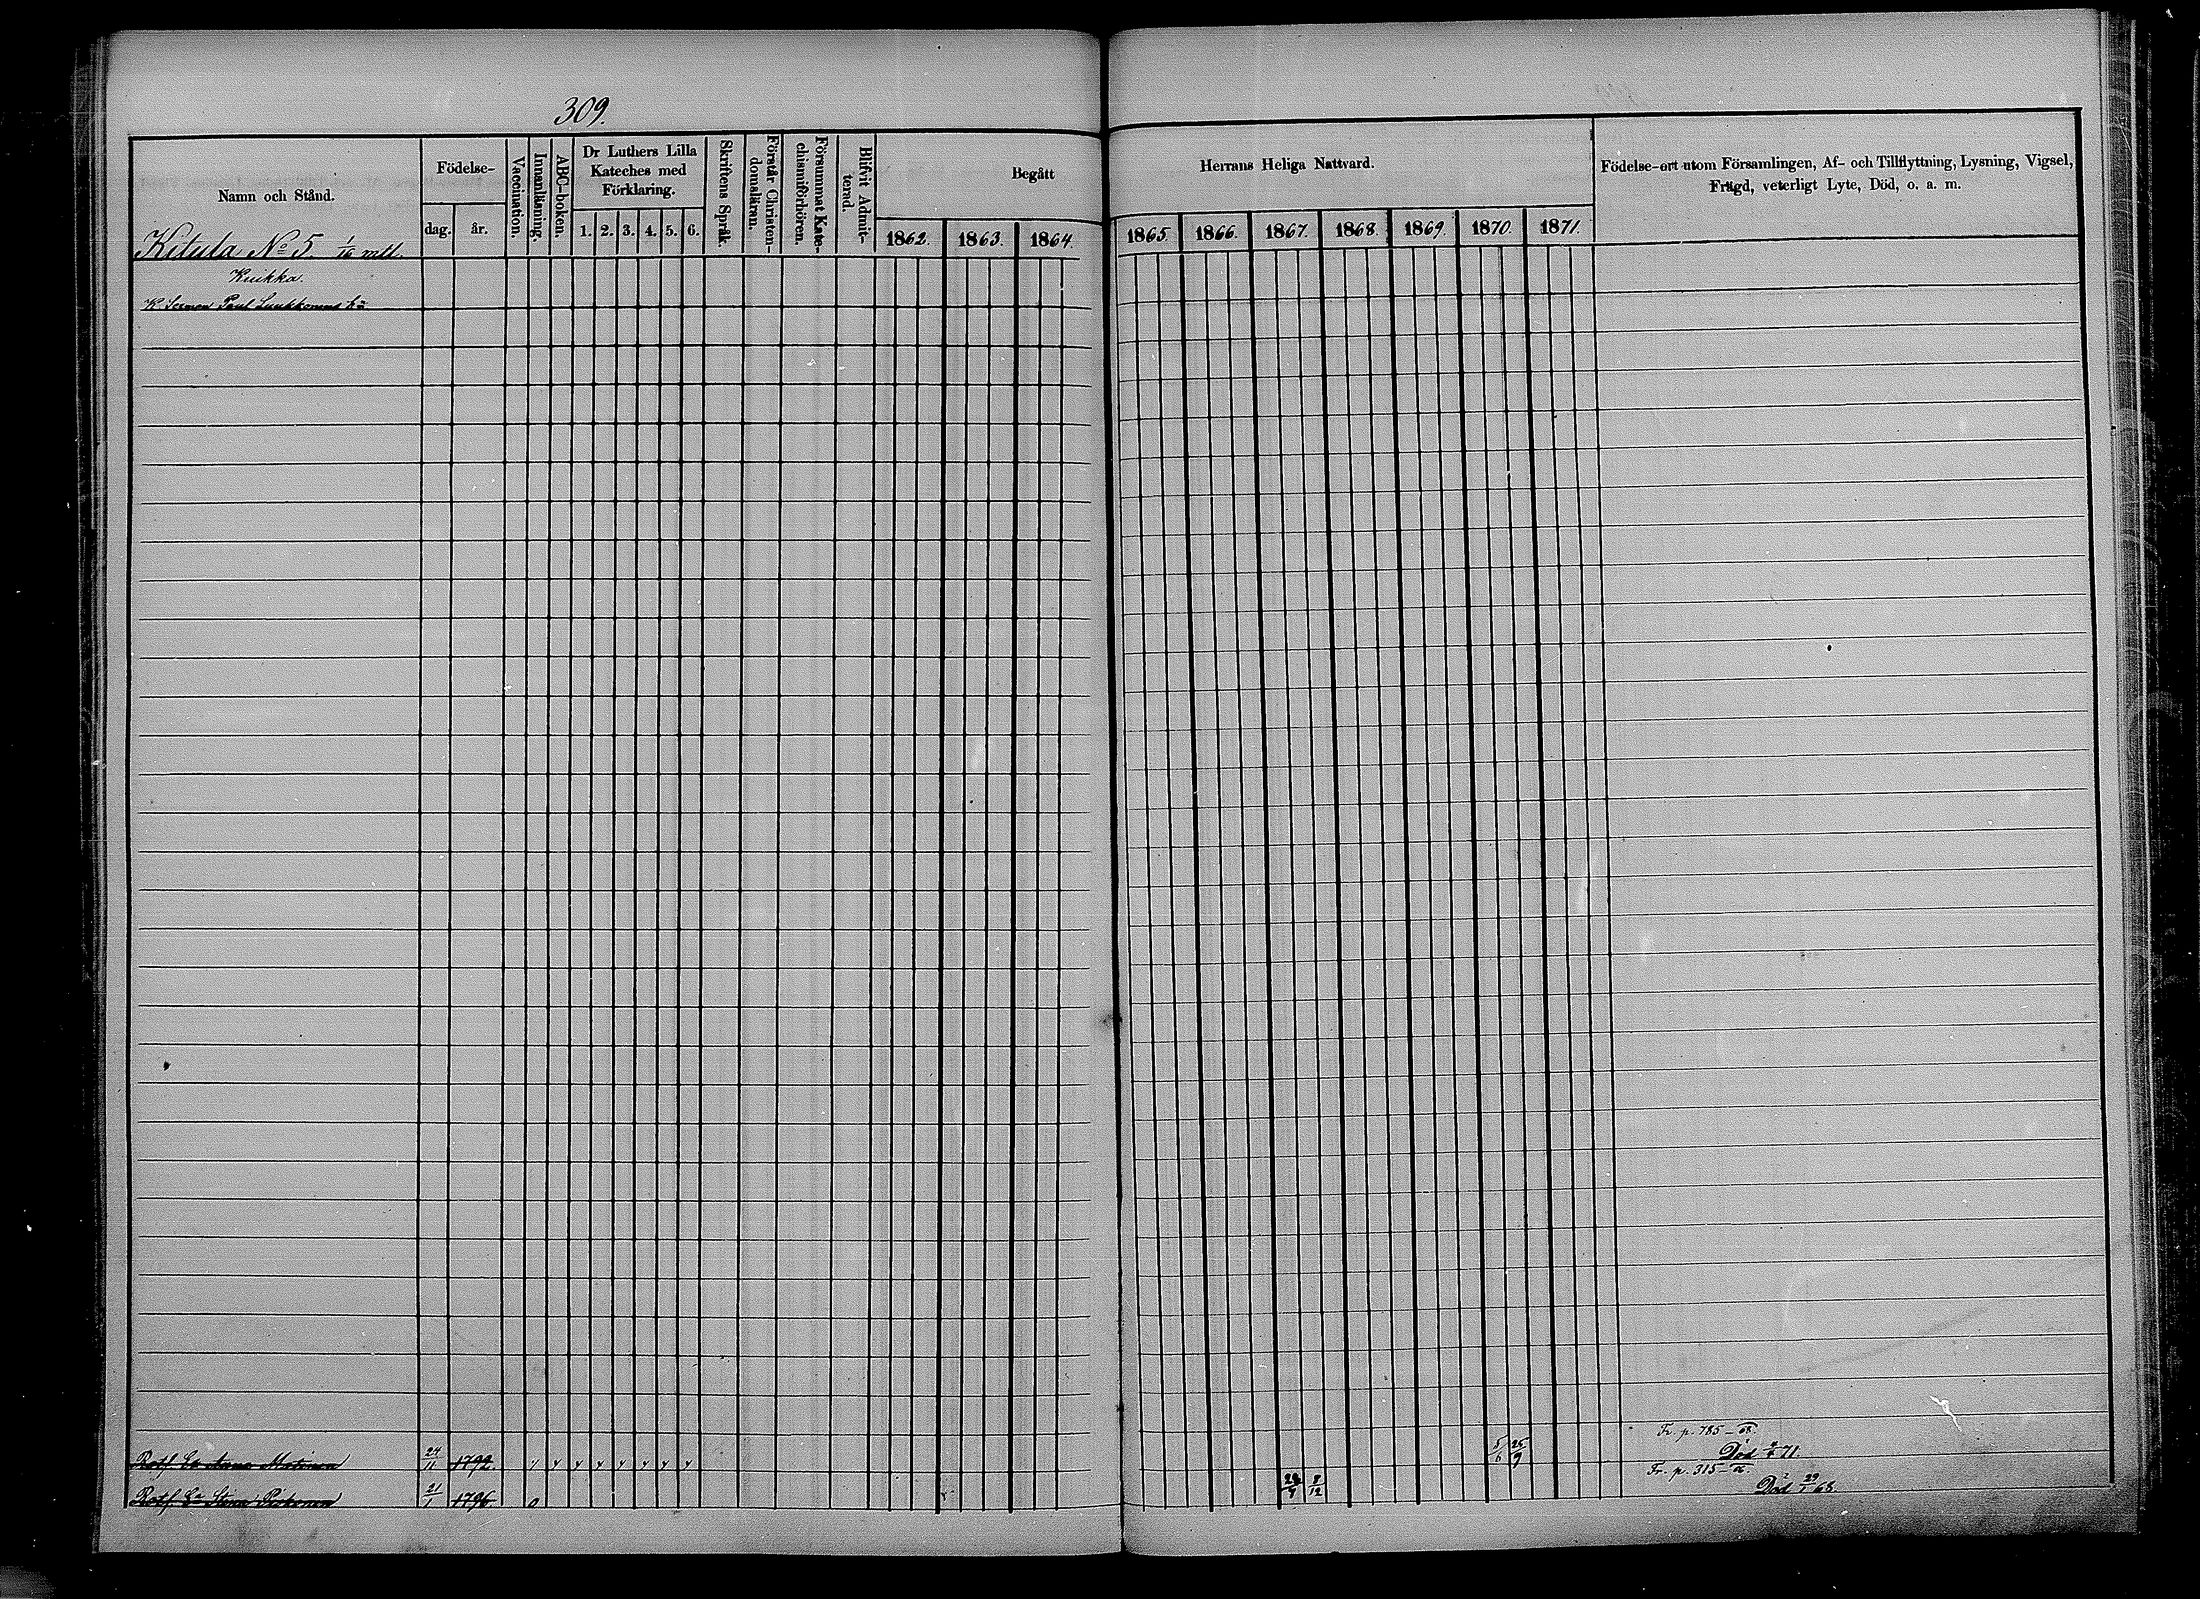 309.
Namn och Stånd.
Födelse-
dag. år.
Vaccination.
Innanläsning.
ABC-boken.
Dr Luthers Lilla
Kateches med
Förklaring.
1. 2. 3. 4. 5. 6.
Skriftens Språk.
Förstår Christen-
domsläran.
Försummat Kate-
chismiförhören.
Blifvit Admit-
terad.
Begått Herrans Heliga Nattvard.
1862. 1863. 1864. 1865. 1866. 1867. 1868. 1869. 1870. 1871.
Födelse-ort utom Församlingen, Af- och Tillflyttning, Lysning, Vigsel,
Frägd, veterligt Lyte, Död, o. a. m.
Kitula No 5. 1/16 mtl.
Kuikka.
Paul Luukkonens
Fr. p. 785-68.
Enk. Anna 24/11 1792. 5/6 25/9 Död 71.
Fr. p. 315-
Stina 21/1 1796. 8/12 Död 29/1 68.